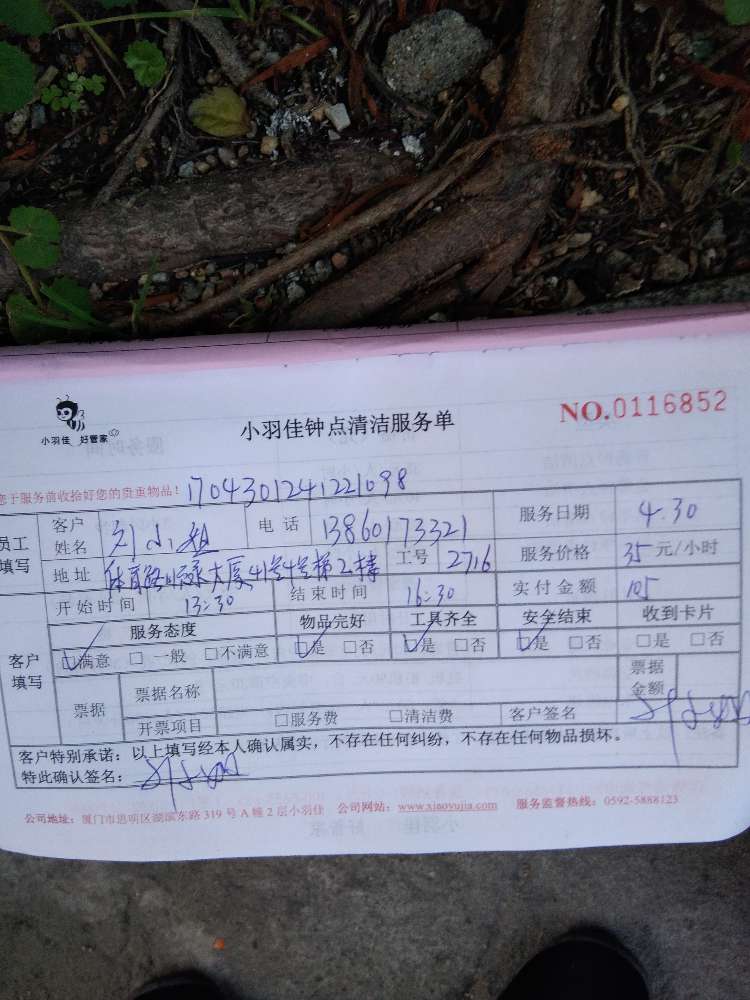 小羽佳 好管家
小羽佳钟点清洁服务单
NO.0116852
您于服务前收拾好您的贵重物品！1704301241221098
员工填写 客户姓名 刘小姐 电话 13860173321 服务日期 4.30
地址 体育路 大厦41号4号梯2楼 工号 2716 服务价格 35元/小时
开始时间 13:30 结束时间 16:30 实付金额 105
客户填写 服务态度 物品完好 工具齐全 安全结束 收到卡片
☑满意 □一般 □不满意 ☑是 □否 ☑是 □否 ☑是 □否 □是 □否
票据 票据名称 票据金额
开票项目 □服务费 □清洁费 客户签名
客户特别承诺：以上填写经本人确认属实，不存在任何纠纷，不存在任何物品损坏。
特此确认签名：
公司地址：厦门市思明区湖滨东路319号A幢2层小羽佳 公司网站：www.xiaoyujia.com 服务监督热线：0592-5888123